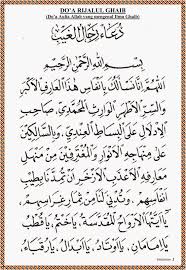 DO'A RIJALUL GHAIB
(Do'a Aulia Allah yang mengenal Ilmu Ghaib)
دُعَاءُ رِجَالُ الْغَيْبِ
بِسْمِ اللّٰهِ الرَّحْمٰنِ الرَّحِيْمِ
اَللّٰهُمَّ اِنَّا نَسْأَلُكَ بِأَنْفَاسِ هٰذَا الْعَارِفِ الْأَكْبَرِ
وَالسِّرِّ الْأَطْهَرِ الْوَارِثِ الْمُحَمَّدِيِّ صَاحِبِ
الْإِدْلَالِ عَلَى بِسَاطِ الْوِصَالِ الْعِنْدِيِّ وَالسَّالِكِيْنَ
عَلَى مِنْهَاجِهِ الْأَنْوَارِ وَالْمُغْتَرِفِيْنَ مِنْ مَنْهَلِ
مَعَارِفِهِ الْعَذْبِ الْأَفْخَرِ أَنْ تُحْيِيَ أَنْفَاسَنَا
بِأَنْفَاسِهِمْ وَتُدْنِيَ لَنَا مِنْ ثِمَارِ غِرَاسِهِمْ
يَا أَيَّتُهَا الْأَرْوَاحُ الْمُقَدَّسَةُ، يَاخَتْمُ، يَاقُطْبُ
يَا إِمَامَانِ، يَا أَوْتَادُ، يَا أَبْدَالُ، يَا رُقَبَاءُ،